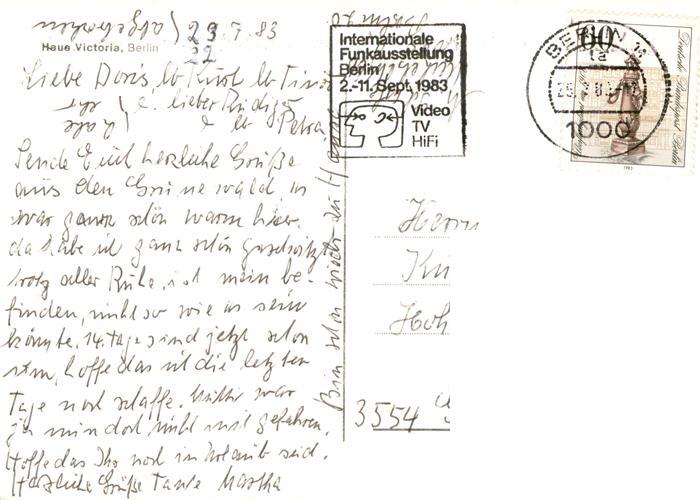 Haus Victoria, Berlin
23.7.83
22
Liebe Doris lb Kurt lb Tina
& lieber Rüdiger
& lb Petra
Sende Euch herzliche Grüße
aus den Grunewald, es
war ganz schön warm hier.
da habe ich ganz schön geschwitzt
trotz aller Ruhe, ist mein be-
finden, nicht so wie es sein
könnte. 14. Tage sind jetzt schon
rum, hoffe das ich die letzten
Tage noch schaffe. Mutti war
ja nun doch nicht mit gefahren.
Hoffe das Ihr noch in Urlaub seid.
Herzliche Grüße Tante Martha
Bin schon wieder zu Hause
Internationale
Funkausstellung
Berlin
2.-11. Sept. 1983
Video
TV
HiFi
BERLIN 12
ta
1000
60
Deutsche Bundespost Berlin
1983
Herrn
Hoh
3554